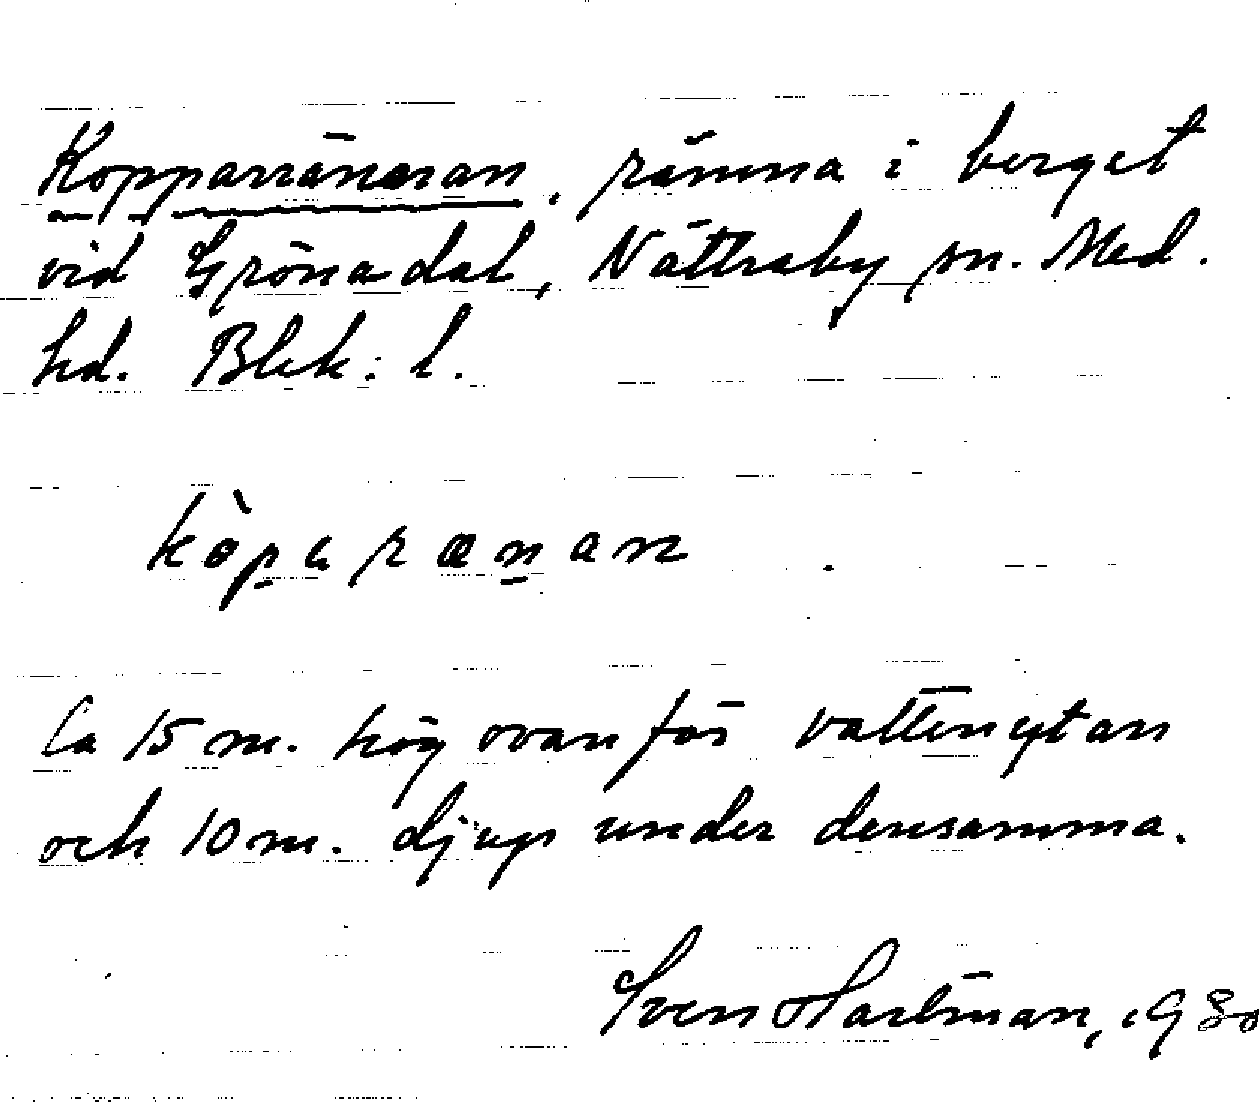 Kopparrännan, rämna i berget
vid Grönadal, Nättraby sn. Med.
hd. Blek. l.
kòpa rænan
Ca 15 m. hög ovanför vattenytan
och 10 m. djup under densamma.
Sven Hartman, 1930